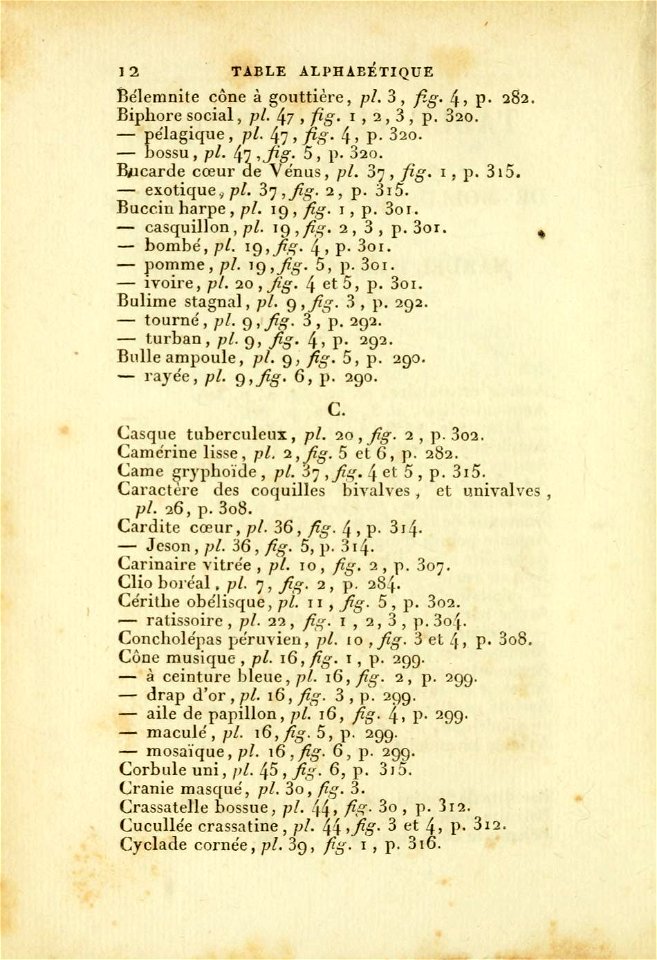 12 TABLE ALPHABÉTIQUE
Bélemnite cône à gouttière, pl. 3, fig. 4, p. 282.
Biphore social, pl. 47, fig. 1, 2, 3, p. 320.
— pélagique, pl. 47, fig. 4, p. 320.
— bossu, pl. 47, fig. 5, p. 320.
Bucarde cœur de Vénus, pl. 37, fig. 1, p. 315.
— exotique, pl. 37, fig. 2, p. 315.
Buccin harpe, pl. 19, fig. 1, p. 301.
— casquillon, pl. 19, fig. 2, 3, p. 301.
— bombé, pl. 19, fig. 4, p. 301.
— pomme, pl. 19, fig. 5, p. 301.
— ivoire, pl. 20, fig. 4 et 5, p. 301.
Bulime stagnal, pl. 9, fig. 3, p. 292.
— tourné, pl. 9, fig. 3, p. 292.
— turban, pl. 9, fig. 4, p. 292.
Bulle ampoule, pl. 9, fig. 5, p. 290.
— rayée, pl. 9, fig. 6, p. 290.
C.
Casque tuberculeux, pl. 20, fig. 2, p. 302.
Camérine lisse, pl. 2, fig. 5 et 6, p. 282.
Came gryphoïde, pl. 37, fig. 4 et 5, p. 315.
Caractère des coquilles bivalves, et univalves,
pl. 26, p. 308.
Cardite cœur, pl. 36, fig. 4, p. 314.
— Jeson, pl. 36, fig. 5, p. 314.
Carinaire vitrée, pl. 10, fig. 2, p. 307.
Clio boréal, pl. 7, fig. 2, p. 284.
Cérithe obélisque, pl. 11, fig. 5, p. 302.
— ratissoire, pl. 22, fig. 1, 2, 3, p. 304.
Concholépas péruvien, pl. 10, fig. 3 et 4, p. 308.
Cône musique, pl. 16, fig. 1, p. 299.
— à ceinture bleue, pl. 16, fig. 2, p. 299.
— drap d'or, pl. 16, fig. 3, p. 299.
— aile de papillon, pl. 16, fig. 4, p. 299.
— maculé, pl. 16, fig. 5, p. 299.
— mosaïque, pl. 16, fig. 6, p. 299.
Corbule uni, pl. 45, fig. 6, p. 315.
Cranie masqué, pl. 30, fig. 3.
Crassatelle bossue, pl. 44, fig. 30, p. 312.
Cucullée crassatine, pl. 44, fig. 3 et 4, p. 312.
Cyclade cornée, pl. 39, fig. 1, p. 316.